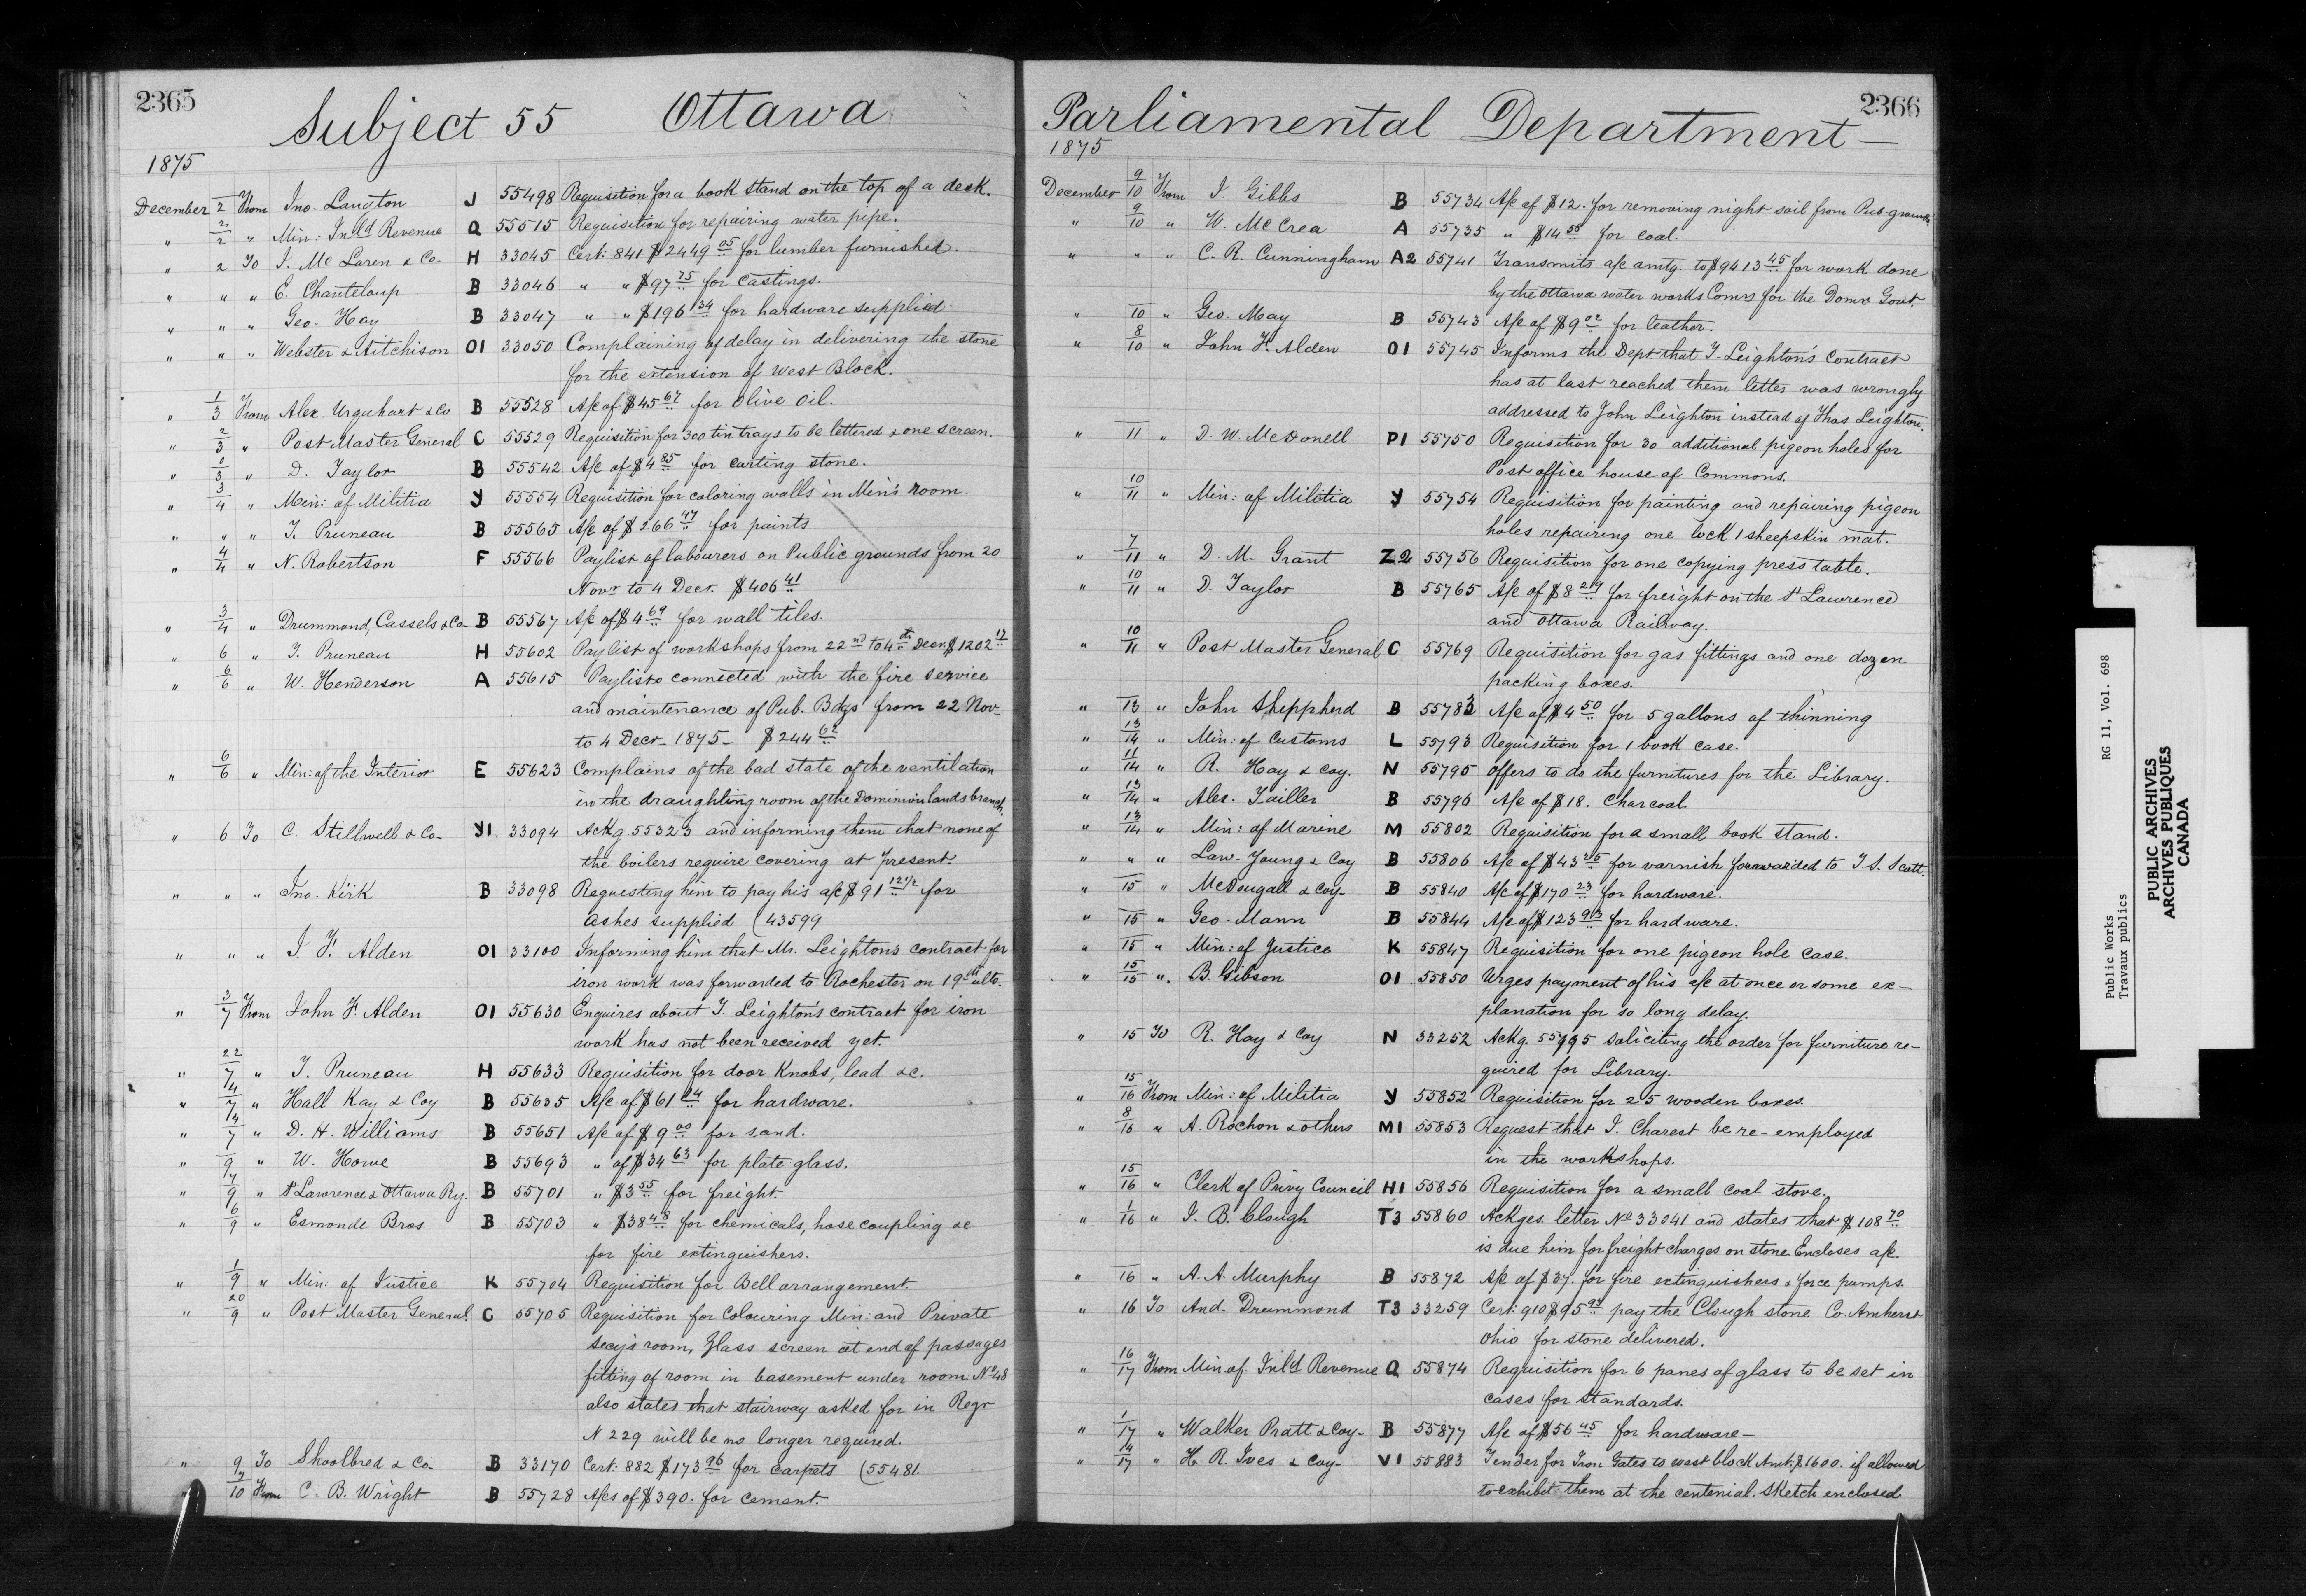 2365
Subject 55 Ottawa
1875
December 2 From Jno. Langton J 55498 Requisition for a book stand on the top of a desk.
" 2/2 " Min: Inld Revenue Q 55515 Requisition for repairing water pipe.
" 2 To J. McLaren & Co. H 33045 Cert: 841 $2449.05 for lumber furnished.
" " " E. Chanteloup B 33046 " " $97.75 for castings.
" " " Geo. Hay B 33047 " " $196.34 for hardware supplied
" " " Webster & Aitchison O1 33050 Complaining of delay in delivering the stone
for the extension of West Block.
" 1/3 From Alex. Urquhart & Co B 55528 A/c of $45.67 for Olive Oil.
" 2/3 " Post Master General C 55529 Requisition for 300 tin trays to be lettered & one screen.
" /3 " D. Taylor B 55542 A/c of $4.85 for carting stone.
" 3/4 " Min: of Militia Y 55554 Requisition for coloring walls in Min's room.
" " " T. Pruneau B 55565 A/c of $266.47 for paints
" 4/4 " N. Robertson F 55566 Paylist of labourers on Public grounds from 20
Novr to 4 Decr. $406.41
" 3/4 " Drummond, Cassels & Co. B 55567 A/c of $4.69 for wall tiles.
" 6 " T. Pruneau H 55602 Paylist of workshops from 22nd to 4th Decr $1202.17
" 6/6 " W. Henderson A 55615 Paylists connected with the fire service
and maintenance of Pub. Bdgs from 22 Nov-
to 4 Decr - 1875 - $244.62
" 6/6 " Min: of the Interior E 55623 Complains of the bad state of the ventilation
in the draughting room of the Dominion lands branch.
" 6 To C. Stillwell & Co- Y1 33094 Ackg 55323 and informing them that none of
the boilers require covering at present.
" " " Jno. Kirk B 33098 Requesting him to pay his a/c $91.12 1/2 for
Ashes supplied (43599
" " " J. F. Alden O1 33100 Informing him that Mr. Leighton's contract for
iron work was forwarded to Rochester on 19th ulto.
" 3/7 From John F. Alden O1 55630 Enquires about T. Leighton's contract for iron
work has not been received yet.
" 22/7 " T. Pruneau H 55633 Requisition for door knobs, lead &c.
" 4/7 " Hall Kay & Coy B 55635 A/c of $61.04 for hardware.
" 4/7 " D. H. Williams B 55651 A/c of $9.00 for sand.
" /9 " W. Howe B 55693 " of $34.63 for plate glass.
" 17/9 " St Lawrence & Ottawa Ry. B 55701 " $3.55 for freight
" 6/9 " Esmonde Bros. B 55703 " $38.48 for chemicals, hose coupling &c
for fire extinguishers.
" 1/9 " Min: of Justice K 55704 Requisition for Bell arrangement.
" 20/9 " Post Master General C 55705 Requisition for Colouring Min: and Private
Secy's room, Glass screen at end of passages
fitting of room in basement under room No 48
also states that stairway asked for in Reqr
N 229 will be no longer required.
" 9 To Shoolbred & Co- B 33170 Cert: 882 $173.96 for Carpets (55481.
" 7/10 From C. B. Wright B 55728 A/cs of $390. for cement.
2366
Parliamental Department -
1875
December 9/10 From J. Gibbs B 55734 A/c of $12. for removing night soil from Pub-grounds.
" 9/10 " W. McCrea A 55735 " $14.58 for coal.
" " " C. R. Cunningham A2 55741 Transmits a/c amtg. to $9613.45 for work done
by the Ottawa water works Comrs for the Domn Govt.
" 10 " Geo. May B 55743 A/c of $9.02 for leather.
" 8/10 " John F. Alden O1 55745 Informs the Dept that T. Leighton's contract
has at last reached them letter was wrongly
addressed to John Leighton instead of Thos Leighton.
" 11 " D. W. McDonell P1 55750 Requisition for 30 additional pigeon holes for
Post office house of Commons.
" 10/11 " Min: of Militia Y 55754 Requisition for painting and repairing pigeon
holes repairing one lock 1 sheepskin mat.
" 7/11 " D. M. Grant Z2 55756 Requisition for one copying press table.
" 10/11 " D. Taylor B 55765 A/c of $8.29 for freight on the St Lawrence
and Ottawa Railway.
" 10/11 " Post Master General C 55769 Requisition for gas fittings and one dozen
packing boxes.
" 13 " John Sheppherd B 55783 A/c of $4.50 for 5 gallons of thinning
" 13/14 " Min: of Customs L 55793 Requisition for 1 book case.
" 11/14 " R. Hay & Coy. N 55795 Offers to do the furnitures for the Library.
" 13/14 " Alex. Tailler B 55796 A/c of $18. Charcoal.
" 13/14 " Min: of Marine M 55802 Requisition for a small book stand.
" " " Law. Young & Coy B 55806 A/c of $43.25 for varnish forawarded to T. S. Scott.
" 15 " McDougall & Coy- B 55840 A/c of $170.23 for hardware.
" 15 " Geo. Mann B 55844 A/c of $123.93 for hardware.
" 15 " Min: of Justice K 55847 Requisition for one pigeon hole case.
" 15/15 " B. Gibson O1 55850 Urges payment of his a/c at once or some ex-
planation for so long delay.
" 15 To R. Hay & Coy N 33252 Ackg. 55795 soliciting the order for furniture re-
quired for Library.
" 15/16 From Min: of Militia Y 55852 Requisition for 25 wooden boxes.
" 8/16 " A. Rochon & others M1 55853 Request that J. Charest be re-employed
in the workshops.
" 15/16 " Clerk of Privy Council H1 55856 Requisition for a small coal stove.
" 1/16 " J. B. Clough T3 55860 Ackges. letter No 33041 and states that $108.70
is due him for freight charges on stone Encloses a/c.
" 16 " A. A. Murphy B 55872 A/c of $37. for fire extinguishers & force pumps.
" 16 To And. Drummond T3 33259 Cert: 910 $95.94 pay the Clough stone Co. Amherst
Ohio for stone delivered.
" 16/17 From Min. of Inld Revenue Q 55874 Requisition for 6 panes of glass to be set in
cases for standards.
" 1/17 " Walker Pratt & Coy- B 55877 A/c of $56.45 for hardware -
" 14/17 " H. R. Ives & Coy- V1 55883 Tender for Iron Gates to west block Amt: $1600. if allowed
to exhibit them at the centenial. Sketch enclosed
Public Works RG 11, Vol. 698
Travaux publics
PUBLIC ARCHIVES
ARCHIVES PUBLIQUES
CANADA